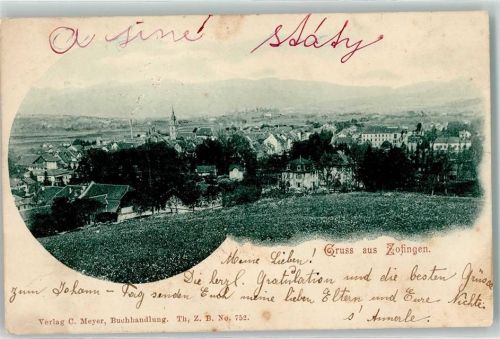 a jiné státy
Gruss aus Zofingen.
Meine Lieben!
Die herzl. Gratulation und die besten Grüsse
zum Johann-Tag senden Euch meine lieben Eltern und Eure Nichte
s'Annerle.
Verlag C. Meyer, Buchhandlung. Th. Z. B. No. 752.